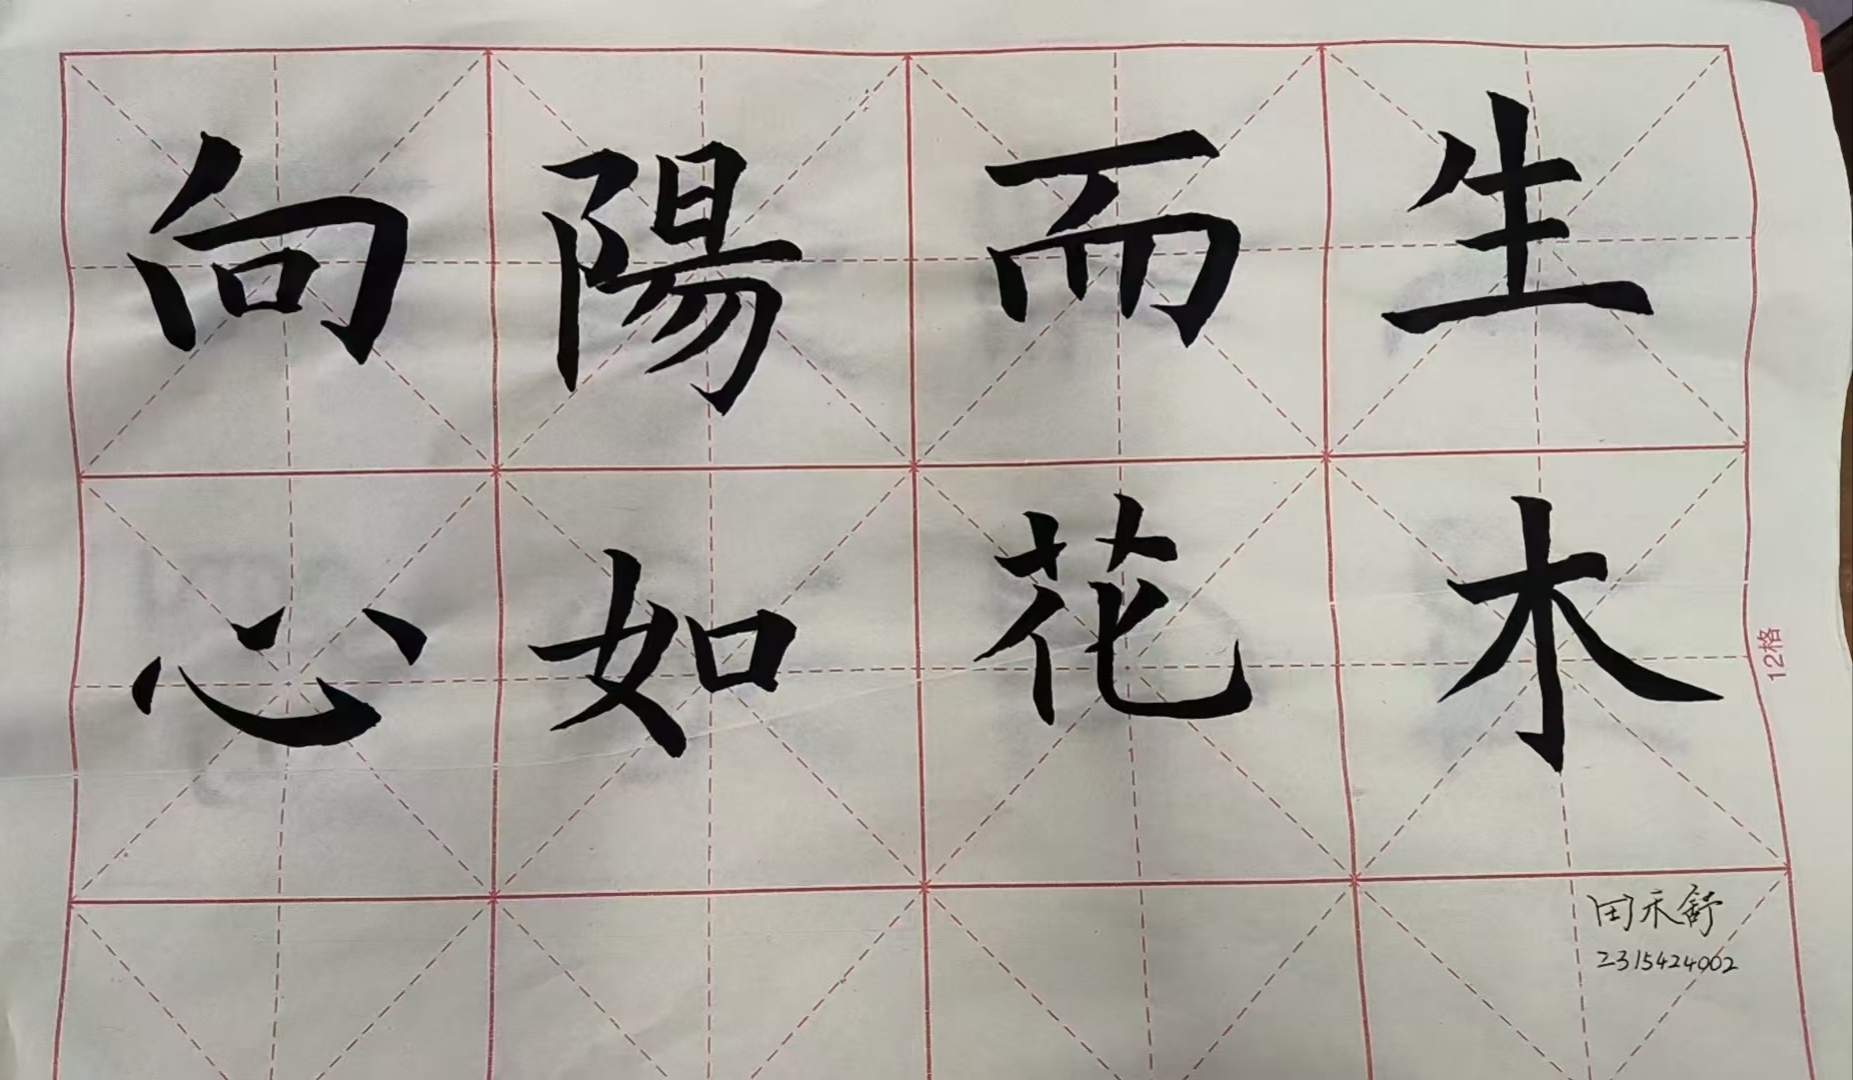 向陽而生
心如花木
12格
田禾舒
2315424002